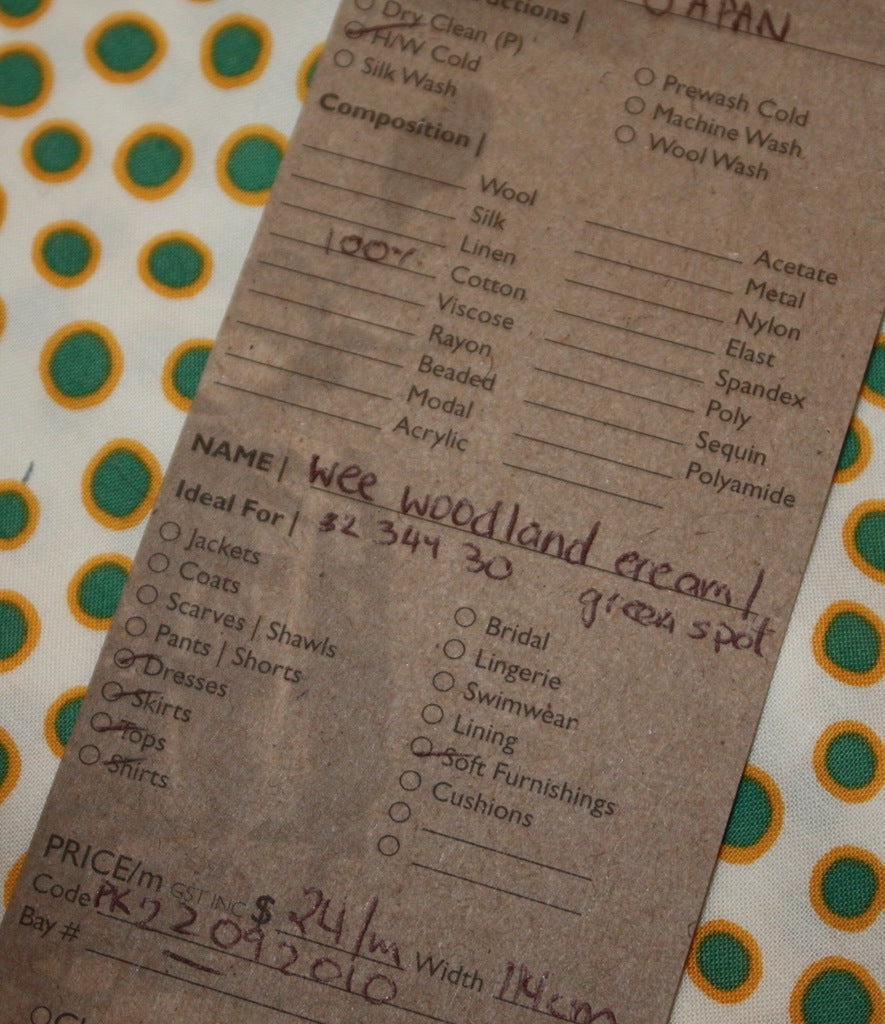 JAPAN
Dry Clean (P)
H/W Cold
Silk Wash
Prewash Cold
Machine Wash
Wool Wash
Composition |
Wool
Silk
Linen
100% Cotton
Viscose
Rayon
Beaded
Modal
Acrylic
Acetate
Metal
Nylon
Elast
Spandex
Poly
Sequin
Polyamide
NAME | Wee woodland cream/
green spot
Ideal For | 32 344 30
Jackets
Coats
Scarves | Shawls
Pants | Shorts
Dresses
Skirts
Tops
Shirts
Bridal
Lingerie
Swimwear
Lining
Soft Furnishings
Cushions
PRICE/m GST INC $ 24/m Width 114cm
Code PK 2209 2010
Bay # —